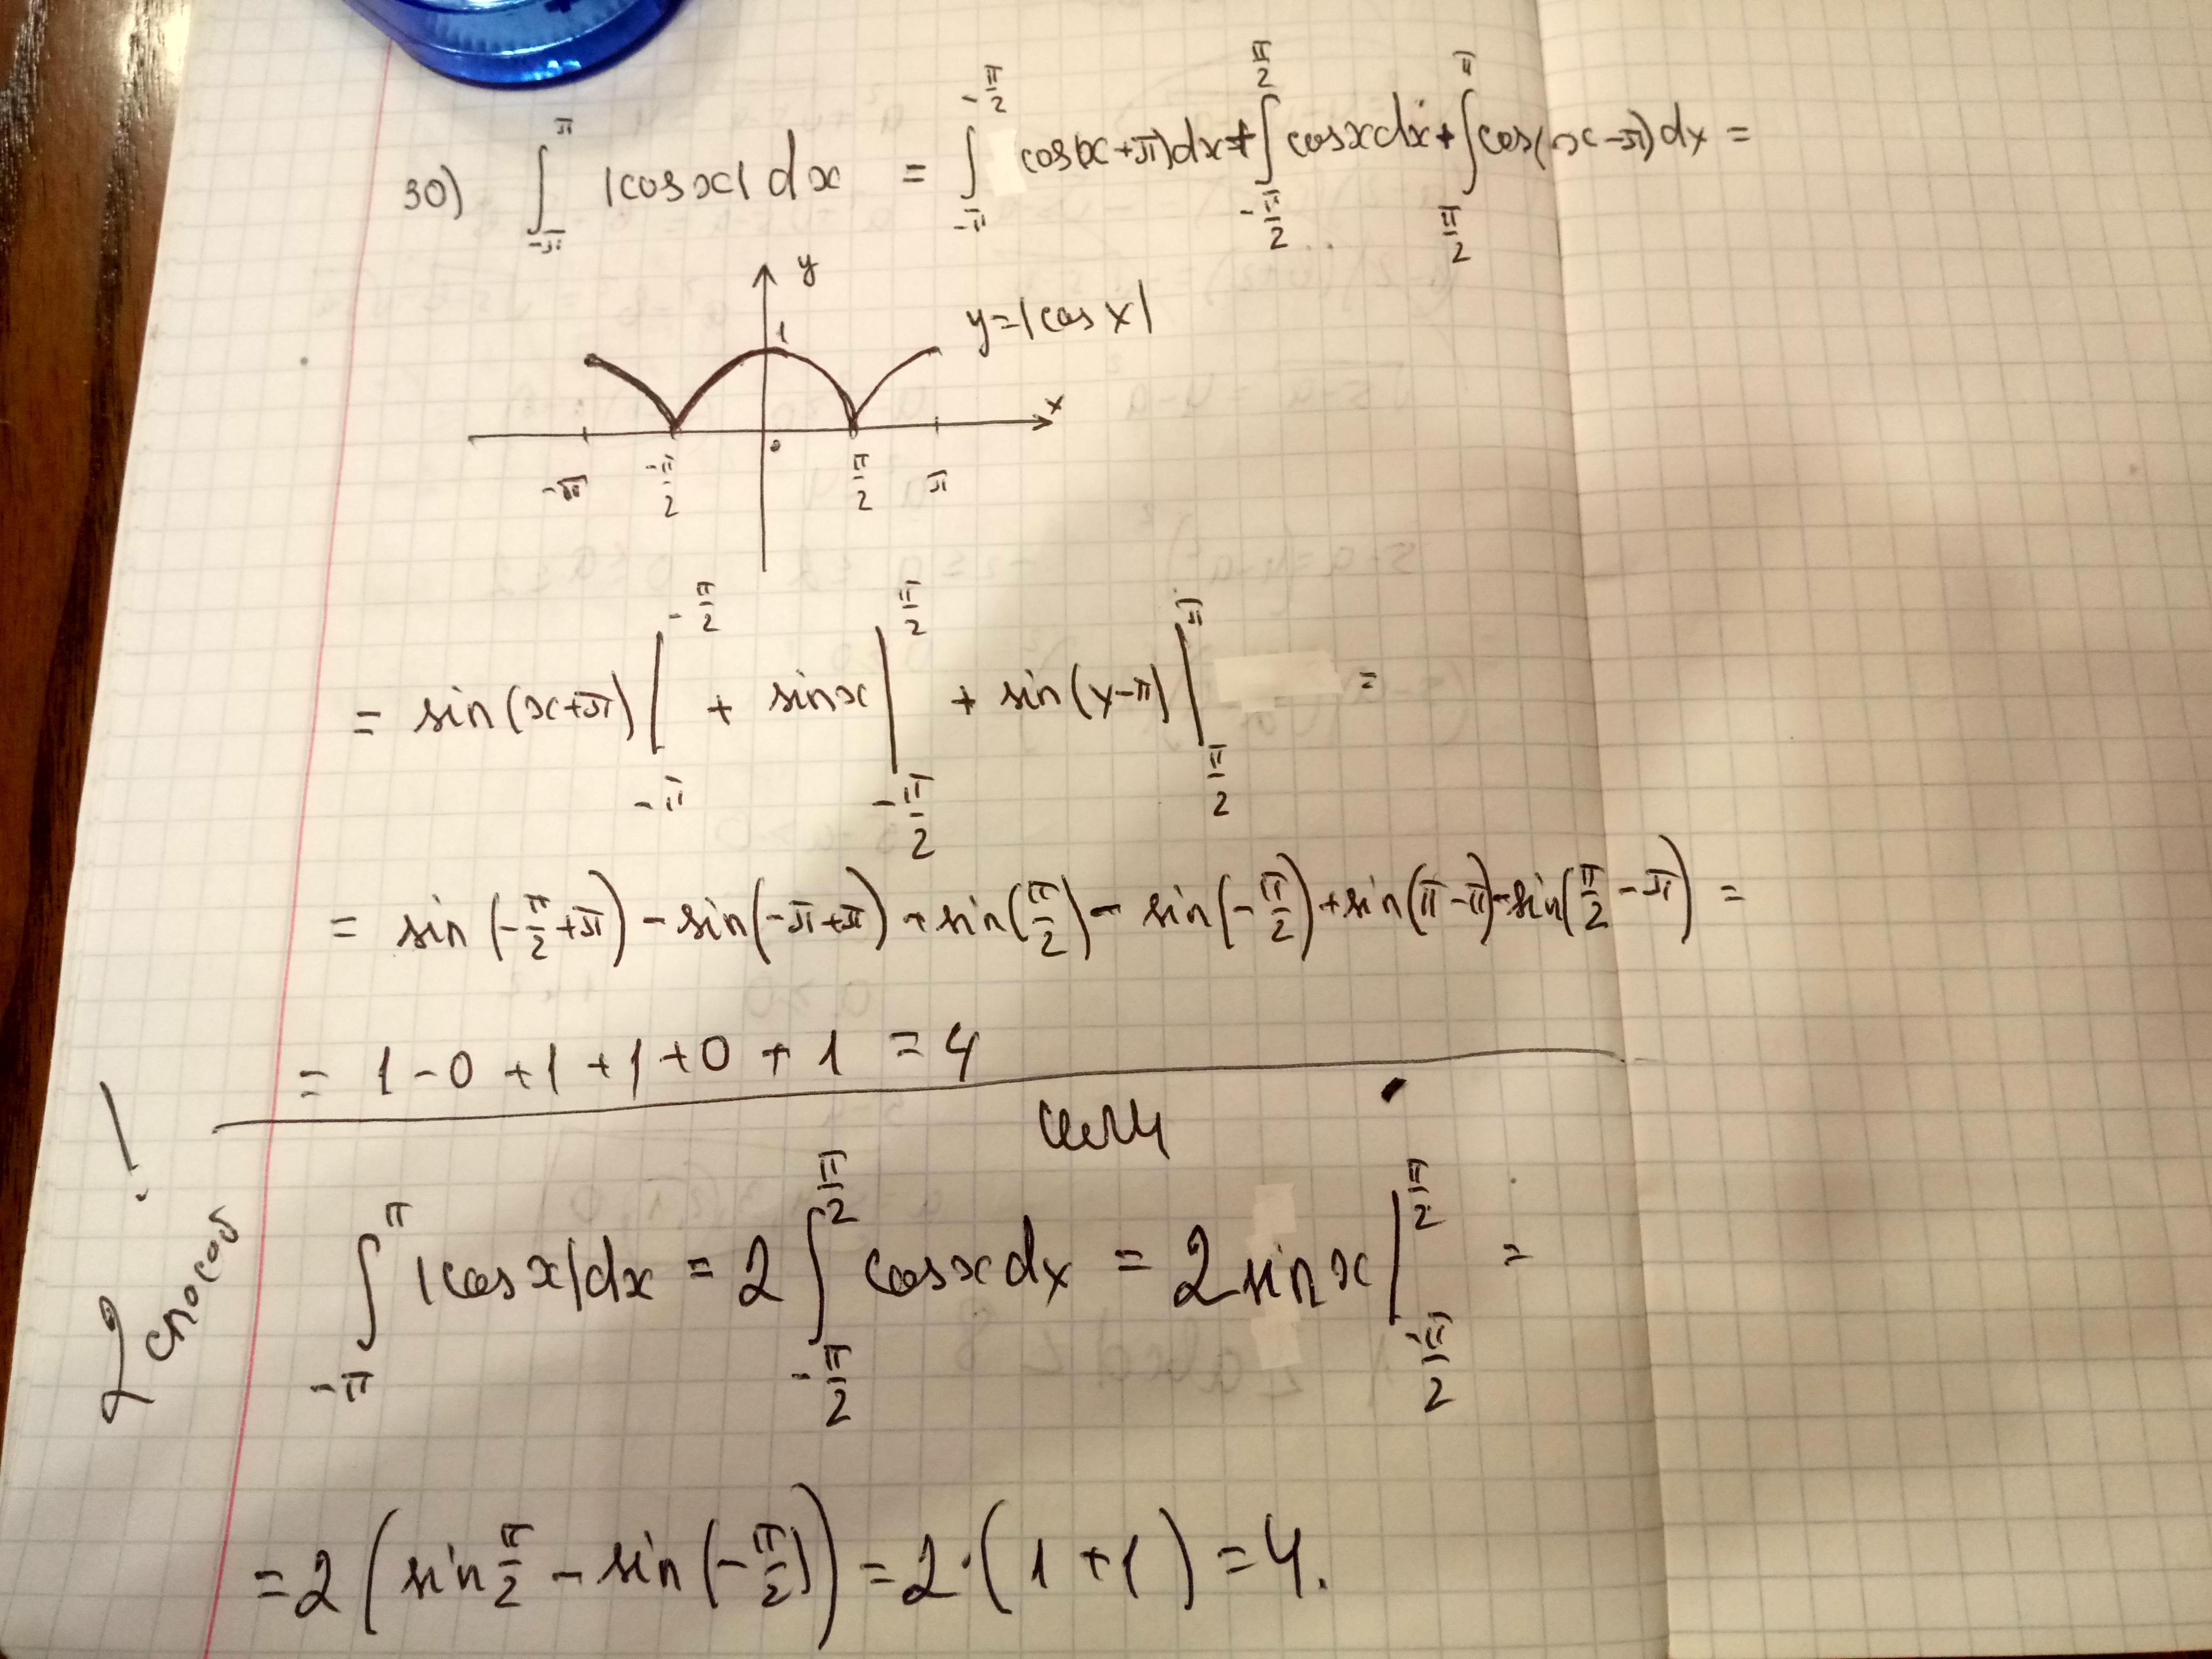 30) ∫_{-π}^{π} |cos x| dx = ∫_{-π}^{-π/2} cos(x+π)dx + ∫_{-π/2}^{π/2} cos x dx + ∫_{π/2}^{π} cos(x-π)dx =
y
1
y=|cos x|
x
0
-π -π/2 π/2 π
= sin(x+π) |_{-π}^{-π/2} + sin x |_{-π/2}^{π/2} + sin(x-π) |_{π/2}^{π} =
= sin(-π/2+π) - sin(-π+π) + sin(π/2) - sin(-π/2) + sin(π-π) - sin(π/2-π) =
= 1 - 0 + 1 + 1 + 0 + 1 = 4
или
! 2 способ
∫_{-π}^{π} |cos x|dx = 2 ∫_{-π/2}^{π/2} cos x dx = 2 sin x |_{-π/2}^{π/2} =
= 2 (sin π/2 - sin(-π/2)) = 2·(1+1) = 4.